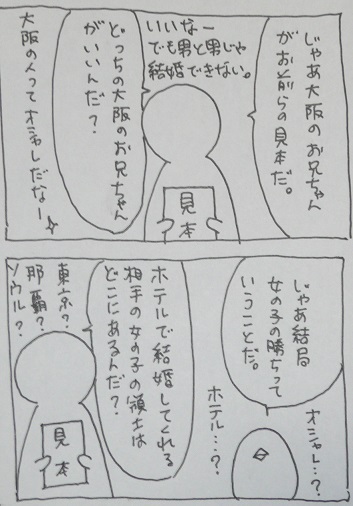 じゃあ大阪のお兄ちゃん
がお前らの見本だ。
いいなー
でも男と男じゃ
結婚できない。
どっちの大阪のお兄ちゃん
がいいんだ？
大阪の人ってオシャレだなー
見本
じゃあ結局
女の子の勝ちって
いうことだ。
オシャレ…？
ホテル…？
ホテルで結婚してくれる
相手の女の子の領土は
どこにあるんだ？
東京？
那覇？
ソウル？
見本